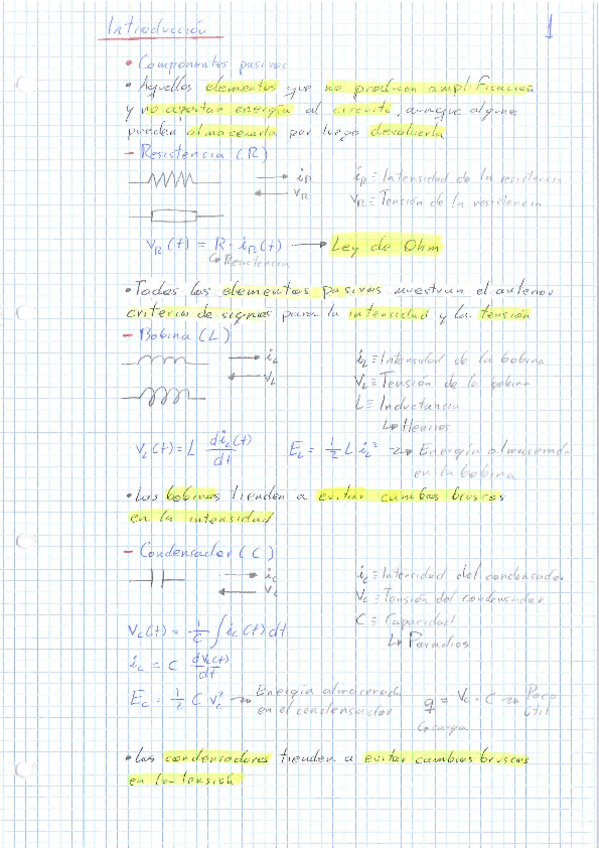 Introducción 1
• Componentes pasivos
• Aquellos elementos que no producen amplificación
y no aportan energía al circuito, aunque alguno
pueden almacenarla por luego devolverla
- Resistencia (R)
iR iR ≡ Intensidad de la resistencia
VR VR ≡ Tensión de la resistencia
VR(t) = R · iR(t) → Ley de Ohm
↳ Resistencia
• Todos los elementos pasivos muestran el anterior
criterio de signos para la intensidad y la tensión
- Bobina (L)
iL iL ≡ Intensidad de la bobina
VL VL ≡ Tensión de la bobina
L ≡ Inductancia
↳ Henrios
VL(t) = L diL(t)/dt EL = 1/2 L iL² → Energía almacenada
en la bobina
• Las bobinas tienden a evitar cambios bruscos
en la intensidad
- Condensador (C)
iC iC ≡ Intensidad del condensador
VC VC ≡ Tensión del condensador
C ≡ Capacidad
↳ Faradios
VC(t) = 1/C ∫ iC(t) dt
iC = C dVC(t)/dt
EC = 1/2 C VC² → Energía almacenada
en el condensador
q = VC · C → Poco
útil
↳ carga
• Los condensadores tienden a evitar cambios bruscos
en la tensión